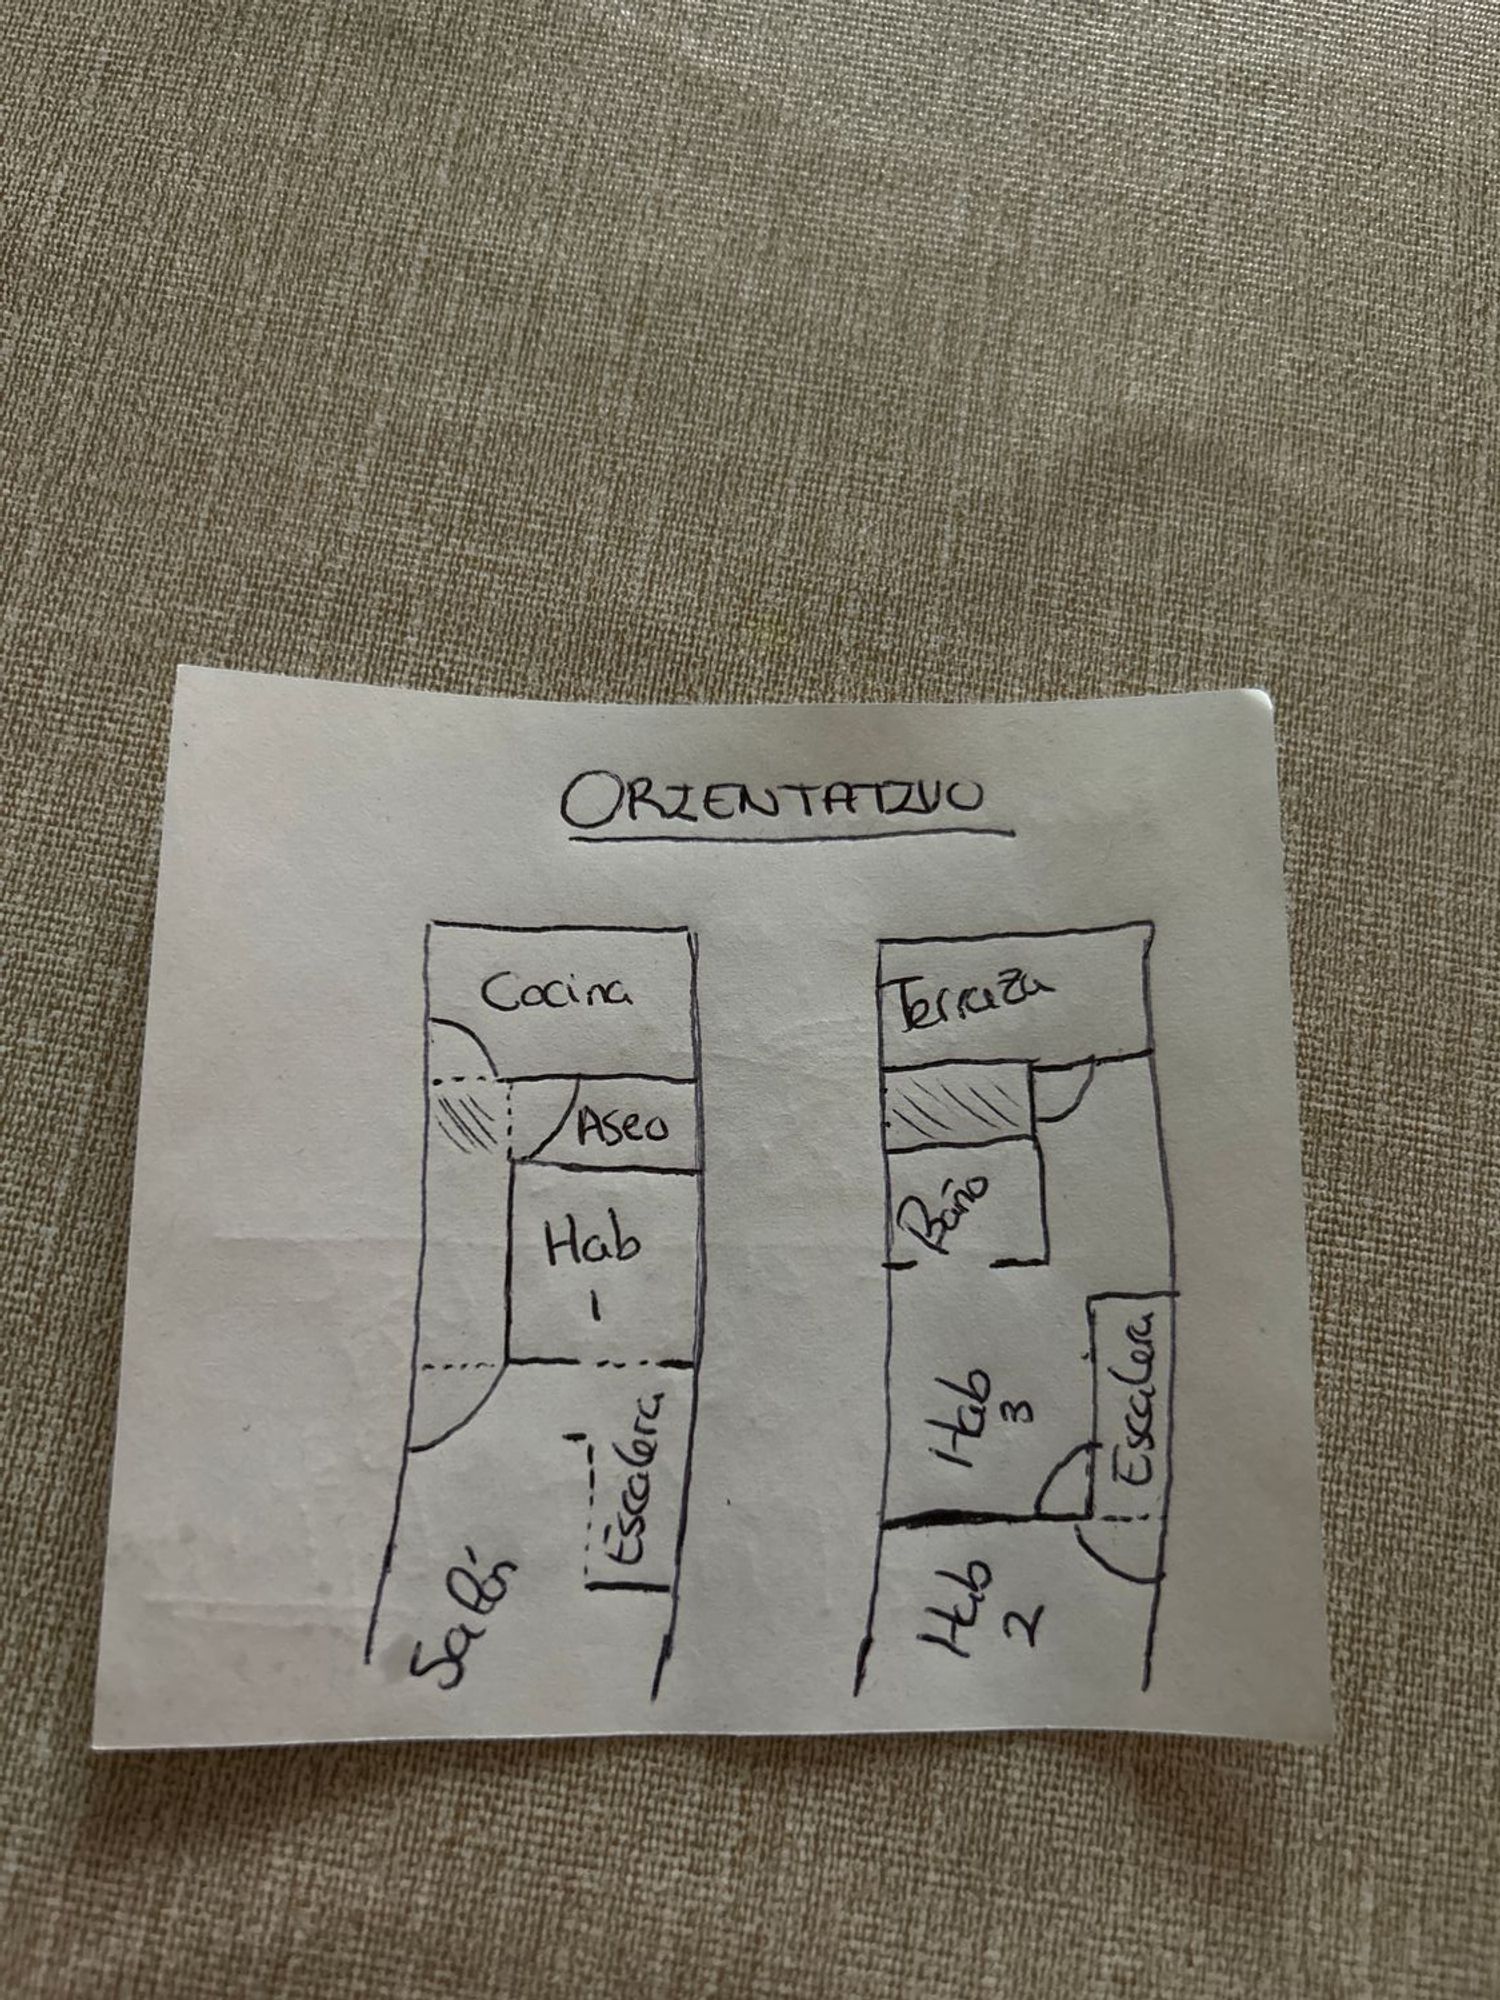 ORIENTATIVO
Cocina
Aseo
Hab
1
Escalera
Salón
Terraza
Baño
Hab
3
Escalera
Hab
2